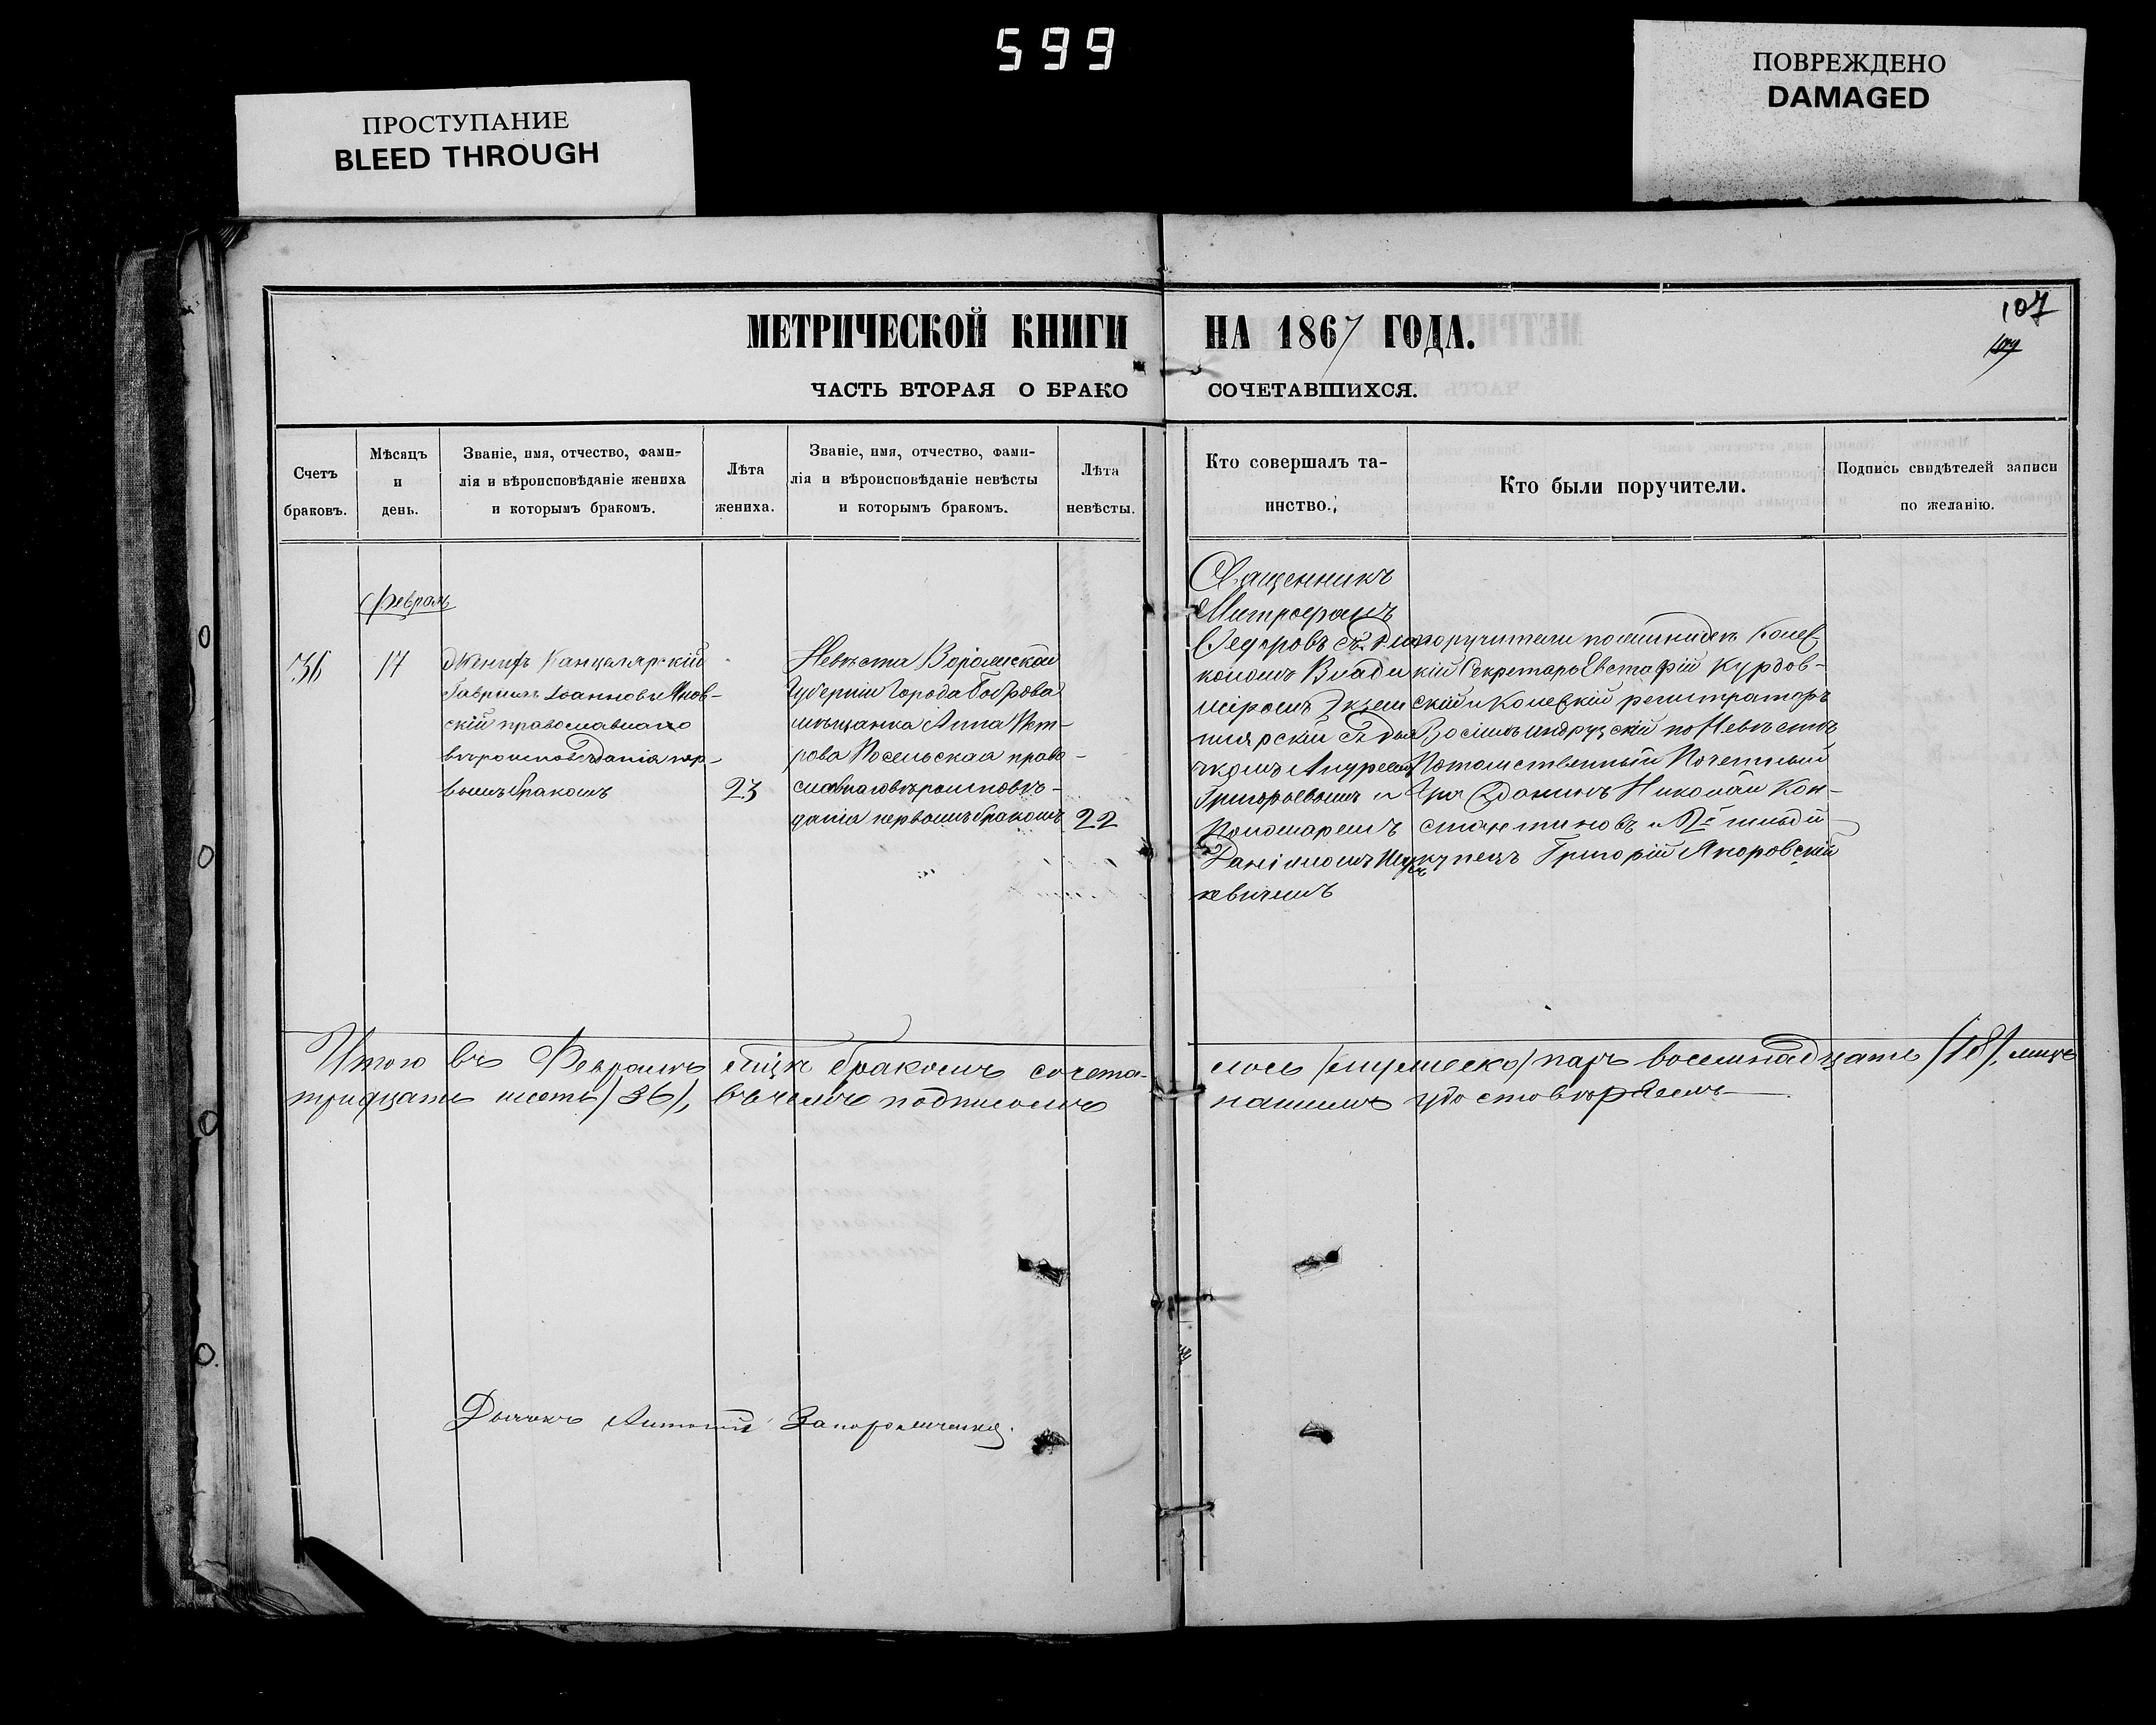 599
ПРОСТУПАНИЕ
BLEED THROUGH
ПОВРЕЖДЕНО
DAMAGED
107
МЕТРИЧЕСКОЙ КНИГИ НА 1867 ГОДА.
ЧАСТЬ ВТОРАЯ О БРАКО СОЧЕТАВШИХСЯ.
Счетъ
браковъ.
Мѣсяцъ
и
день.
Званіе, имя, отчество, фами-
лія и вѣроисповѣданіе жениха
и которымъ бракомъ.
Лѣта
жениха.
Званіе, имя, отчество, фами-
лія и вѣроисповѣданіе невѣсты
и которымъ бракомъ.
Лѣта
невѣсты.
Кто совершалъ та-
инство.
Кто были поручители.
Подпись свидѣтелей записи
по желанію.
36
Февраль
17
Женихъ Канцелярскій
Гавріилъ Іоанновъ
скій православнаго
вѣроисповѣданія пер-
вымъ бракомъ
23
Невѣста Воронежской
Губерніи Города Боброва
мѣщанка Анна Пет-
рова право-
славнаго вѣроисповѣ-
данія первымъ бракомъ
22
Священникъ
Митрофанъ
Федоровъ съ Діа-
кономъ Влади
міромъ Экзем
плярскій съ Дья
чкомъ Андреемъ
Григорьевымъ и
Пономаремъ
Даніиломъ
кевичемъ
поручители по женихѣ Коллеж
кій Секретарь Евстафій Курдов-
скій и Коллежскій регистраторъ
по Невѣстѣ
Потомственный Почетный
Гражданинъ Николай Кон-
стантиновъ и
купецъ Григорій Якоровскій
Итого въ Февралѣ мцѣ бракомъ сочета- лось (мужеско) паръ восемнадцать (18), лицъ
тридцать шесть (36), въ чемъ подписомъ нашимъ удостовѣряемъ
Дьячекъ Антоній